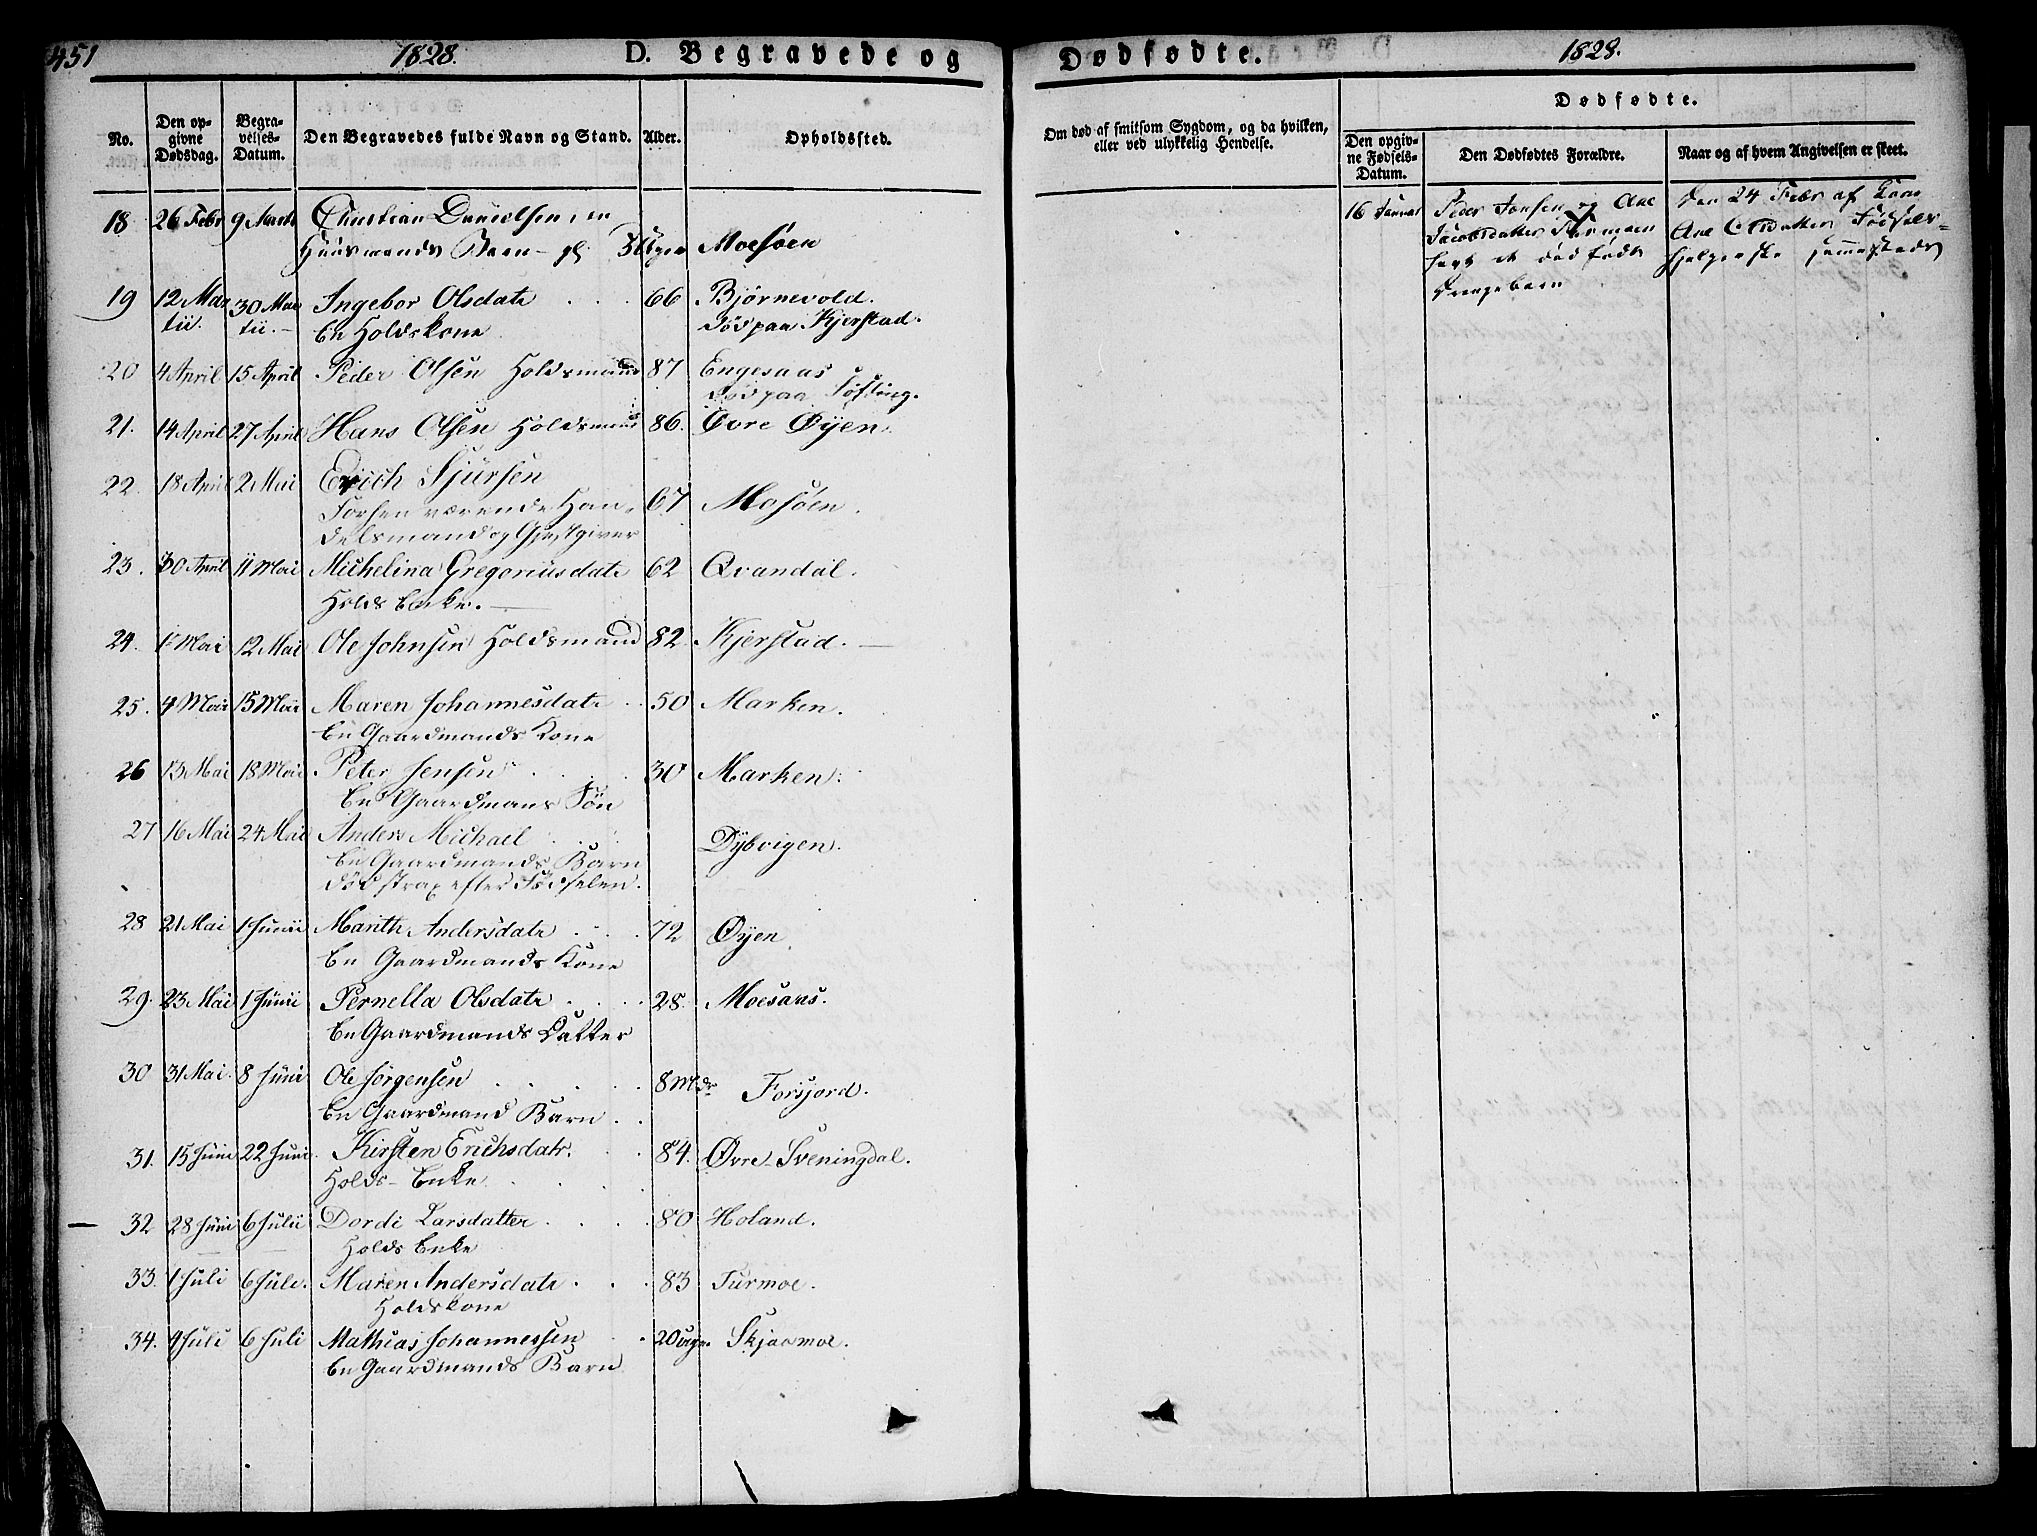 451
1828.
D. Begravede og
Dødfødte.
1828.
No.
Den opgivne Dødsdag.
Begravelses-Datum.
Den Begravedes fulde Navn og Stand.
Alder.
Opholdssted.
Om død af smitsom Sygdom, og da hvilken,
eller ved ulykkelig Hendelse.
Dødfødte.
Den opgivne Fødsels-Datum.
Den Dødfødtes Forældre.
Naar og af hvem Angivelsen er skeet.
18 26 Febr 9 Marts Christian Danielsen, en
Huusmands Barn 3 Uger Moesøen
19 12 Mar 30 Mar Ingebor Olsdatr 66 Bjørnevold.
tii. tii. En Holdskone død paa Kjerstad.
20 4 April 15 April Peder Olsen Holdsmand 87 Engesaas
død paa Søfting.
21. 14 April 27 April Hans Olsen Holdsmand 86. Øvre Øyen.
22. 18 April 2 Mai Erich Sjursen
Forhen værende Han- 67 Mosøen.
delsmand og Gjestgiver
23. 30 April 11 Mai Michelina Gregoriusdatr 62 Qvandal.
Holds Enke.
24. 1 Mai 12 Mai Ole Johnsen Holdsmand 82 Kjerstad.
25. 4 Mai 15 Mai Maren Johannesdatr 50 Marken.
En Gaardmands Kone
26 13 Mai 18 Mai Peter Jensen 30 Marken.
En Gaardmans Søn
27 16 Mai 24 Mai Anders Michael Dybvigen.
En Gaardmands Barn
død strax efter Fødselen.
28 21 Mai 1 Junii Marith Andersdatr 72 Øyen.
En Gaardmands Kone
29. 23 Mai 1 Junii Pernella Olsdatr 28. Moesaas.
En Gaardmands Datter
30 31 Mai. 8 Juni Ole Jørgensen 8 Mdr Forsjord.
En Gaardmand Barn
31. 15 Juni 22 Juni Kirsten Erichsdatr. 84. Øvre-Sveningdal.
Holds- Enke
32 28 Juni 6 Julii Dordi Larsdatter 80 Holand.
Holds Enke
33. 1 Juli 6 Juli. Maren Andersdatr 83 Turmoe.
Holdskone
34. 4 Juli 6 Juli Mathias Johannessen 20 uger. Skjaamoe.
En Gaardmands Barn
16 Januar Peder Jonsen og Ane
Jacobsdatter
et død født
Drengebarn
Den 24 Febr af
Ane Fødsels-
hjelperske sammesteds